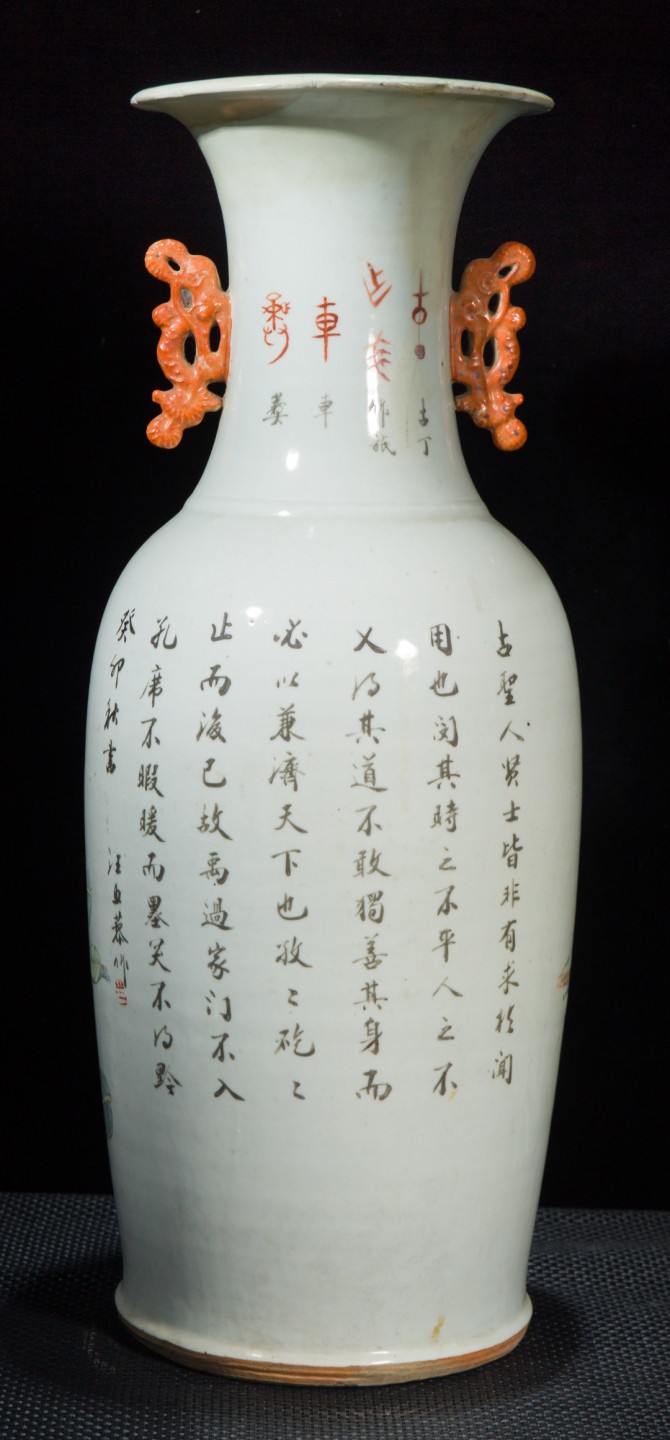 古
車
古丁
作
車
彝
古聖人賢士皆非有求於聞
用也閔其時之不平人之不
乂得其道不敢獨善其身而
必以兼濟天下也孜〻矻〻
止而後已故禹過家门不入
孔席不暇暖而墨突不得黔
癸卯秋書 汪 作